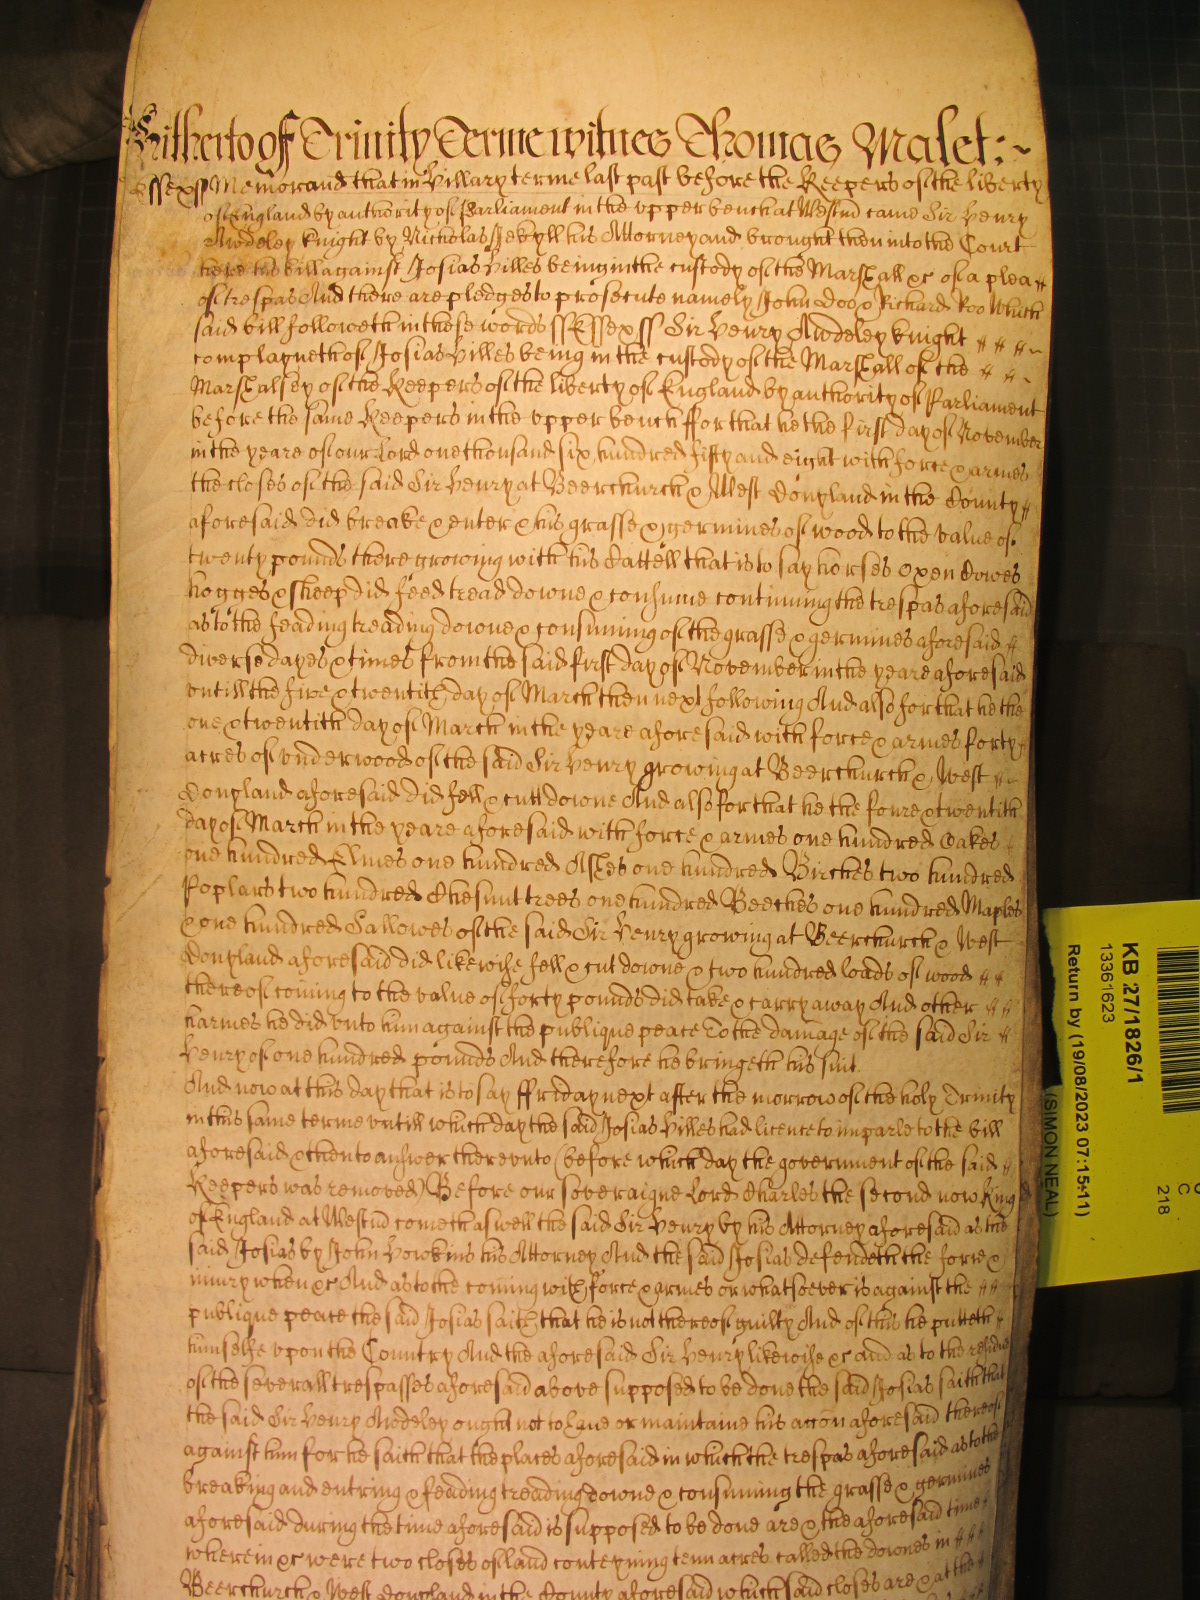 Hitherto of Trinity Terme witnes Thomas Malet:~
Essex ss Memorand that in Hillary terme last past before the Keepers of the liberty
of England by authority of Parliament in the upper bench at Westmr came Sir Henry
Awdeley knight by Nicholas Jekyll his Attorney and brought then into the Court
here his bill against Josias Hilles being in the custody of the Marshall &c of a plea
of trespas And there are pledges to prosecute namely John Doo & Richard Roo Which
said bill followeth in these words ss Essex ss Sir Henry Awdeley knight
complayneth of Josias Hilles being in the custody of the Marshall of the
Marshalsey of the Keepers of the liberty of England by authority of Parliament
before the same Keepers in the upper bench ffor that he the first day of November
in the yeare of our Lord one thousand six hundred fifty and eight with force & armes
the closes of the said Sir Henry at Beerechurch & West Donyland in the County
aforesaid did breake & enter & his grasse & germines of wood to the value of
twenty pounds there growing with his Cattell that is to say horses oxen Cowes
hogges & sheep did feed tread downe & consume continuing the trespas aforesaid
as to the feading treading downe & consuming of the grasse & germines aforesaid
diverse dayes & times from the said first day of November in the yeare aforesaid
untill the five & twentith day of March then next following And also for that he the
one & twentith day of March in the yeare aforesaid with force & armes forty
acres of underwood of the said Sir Henry growing at Beerechurch & West
Donyland aforesaid did fell & cutt downe And also for that he the foure & twentith
day of March in the yeare aforesaid with force & armes one hundred Oakes
one hundred Elmes one hundred Ashes one hundred Birches two hundred
Poplars two hundred Chesnut trees one hundred Beeches one hundred Maples
& one hundred Sallowes of the said Sir Henry growing at Beerechurch & West
Donyland aforesaid did likewise fell & cut downe & two hundred loads of wood
thereof coming to the value of forty pounds did take & carry away And other
harmes he did unto him against the publique peace To the damage of the said Sir
Henry of one hundred pounds And therefore he bringeth his suit.
And now at this day that is to say ffriday next after the morrow of the holy Trinity
in this same terme untill which day the said Josias Hilles had licence to imparle to the bill
aforesaid & then to answer thereunto (before which day the government of the said
Keepers was removed) Before our soveraigne Lord Charles the second now King
of England at Westmr cometh aswell the said Sir Henry by his Attorney aforesaid as the
said Josias by John Howkins his Attorney And the said Josias defendeth the force &
iniury when &c And as to the coming with force & armes or whatsoever is against the
publique peace the said Josias saith that he is not thereof guilty And of this he putteth
himselfe upon the Country And the aforesaid Sir Henry likewise &c And as to the residue
of the severall trespasses aforesaid above supposed to be done the said Josias saith that
the said Sir Henry Awdeley ought not to have or maintaine his accon aforesaid thereof
against him for he saith that the places aforesaid in which the trespas aforesaid as to the
breaking and entring & feading treading downe & consuming the grasse & germines
aforesaid during the time aforesaid is supposed to be done are & the aforesaid time
wherein &c were two closes of land conteyning tenn acres called the downes in
Beerechurch & West Donyland in the County aforesaid which said closes are & at the
KB 27/1826/1
13361623
Return by (19/08/2023 07:15:11)
(SIMON NEAL)
C
218